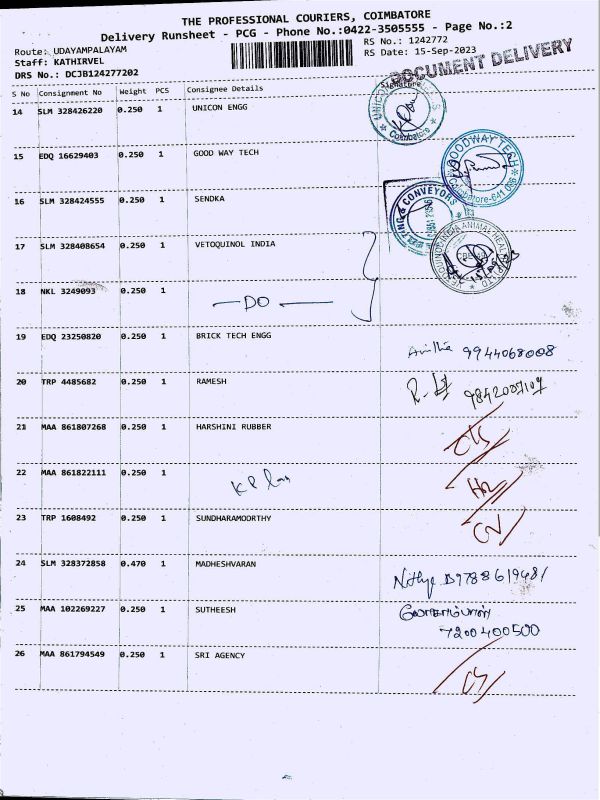 THE PROFESSIONAL COURIERS, COIMBATORE
Delivery Runsheet - PCG - Phone No.:0422-3505555 - Page No.:2
Route: UDAYAMPALAYAM
RS No.: 1242772
Staff: KATHIRVEL
RS Date: 15-Sep-2023
DRS No.: DCJB124277202
DOCUMENT DELIVERY
S No Consignment No Weight PCS Consignee Details Signature
14 SLM 328426220 0.250 1 UNICON ENGG
Coimbatore
15 EDQ 16629403 0.250 1 GOOD WAY TECH
GOODWAY TECH
16 SLM 328424555 0.250 1 SENDKA
& CONVEYORS
17 SLM 328408654 0.250 1 VETOQUINOL INDIA
VETOQUINOL INDIA ANIMAL HEALTH
18 NKL 3249093 0.250 1 DO
19 EDQ 23250820 0.250 1 BRICK TECH ENGG 9944068008
20 TRP 4485682 0.250 1 RAMESH
21 MAA 861807268 0.250 1 HARSHINI RUBBER
22 MAA 861822111 0.250 1
23 TRP 1608492 0.250 1 SUNDHARAMOORTHY
24 SLM 328372858 0.470 1 MADHESHVARAN
25 MAA 102269227 0.250 1 SUTHEESH
7200400500
26 MAA 861794549 0.250 1 SRI AGENCY